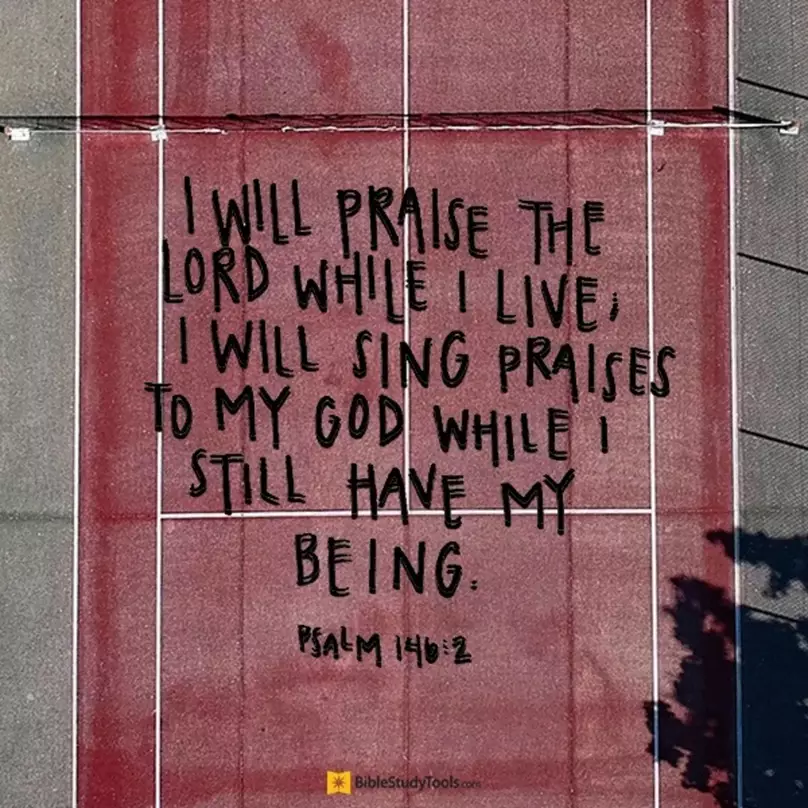 I WILL PRAISE THE
LORD WHILE I LIVE;
I WILL SING PRAISES
TO MY GOD WHILE I
STILL HAVE MY
BEING.
PSALM 146:2
BibleStudyTools.com